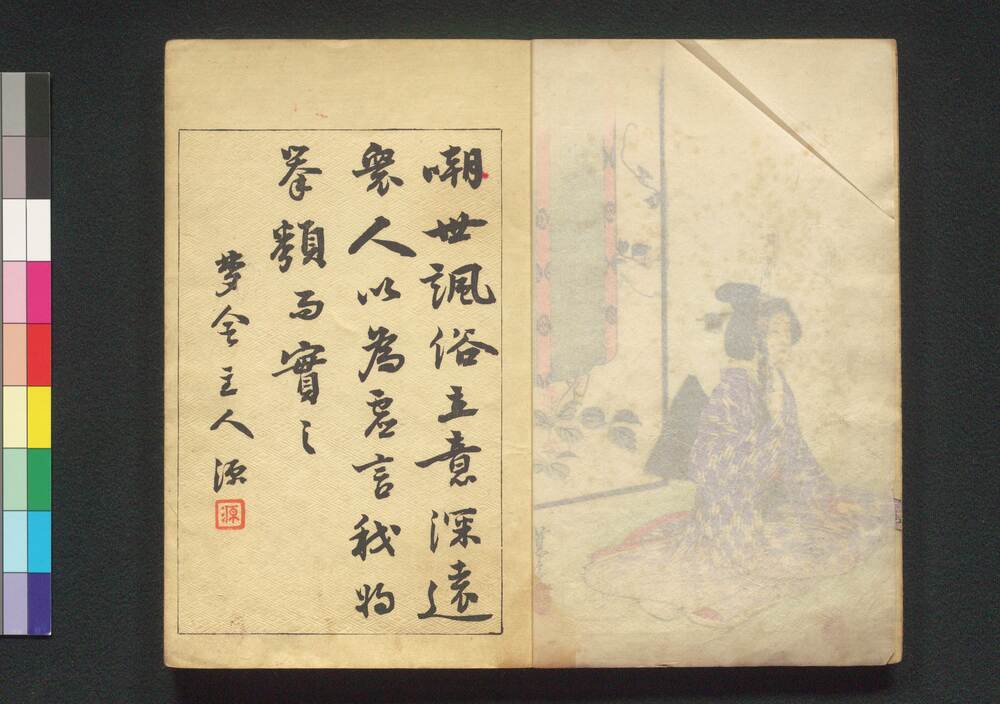 嘲世諷俗立意深遠
衆人以為虚言我将
拳類而實之
夢舎主人源
源